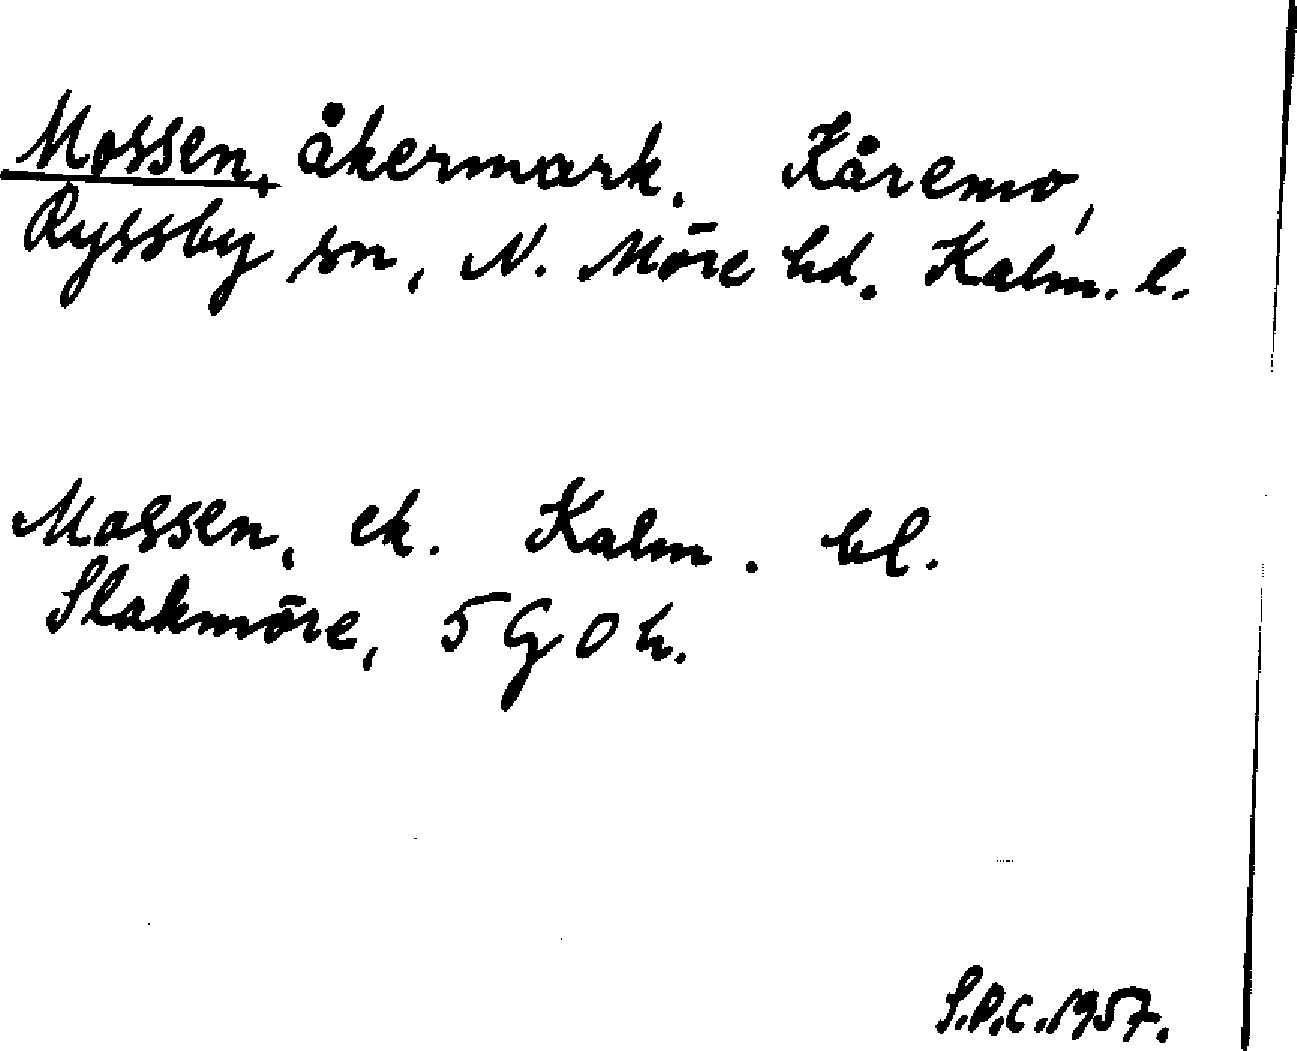 Mossen, åkermark. Kåremo,
Ryssby sn, N. Möre hd. Kalm. l.
Mossen, ek. Kalm. bl.
Slakmöre, 5 G 0 h.
S.P.C. 1957.